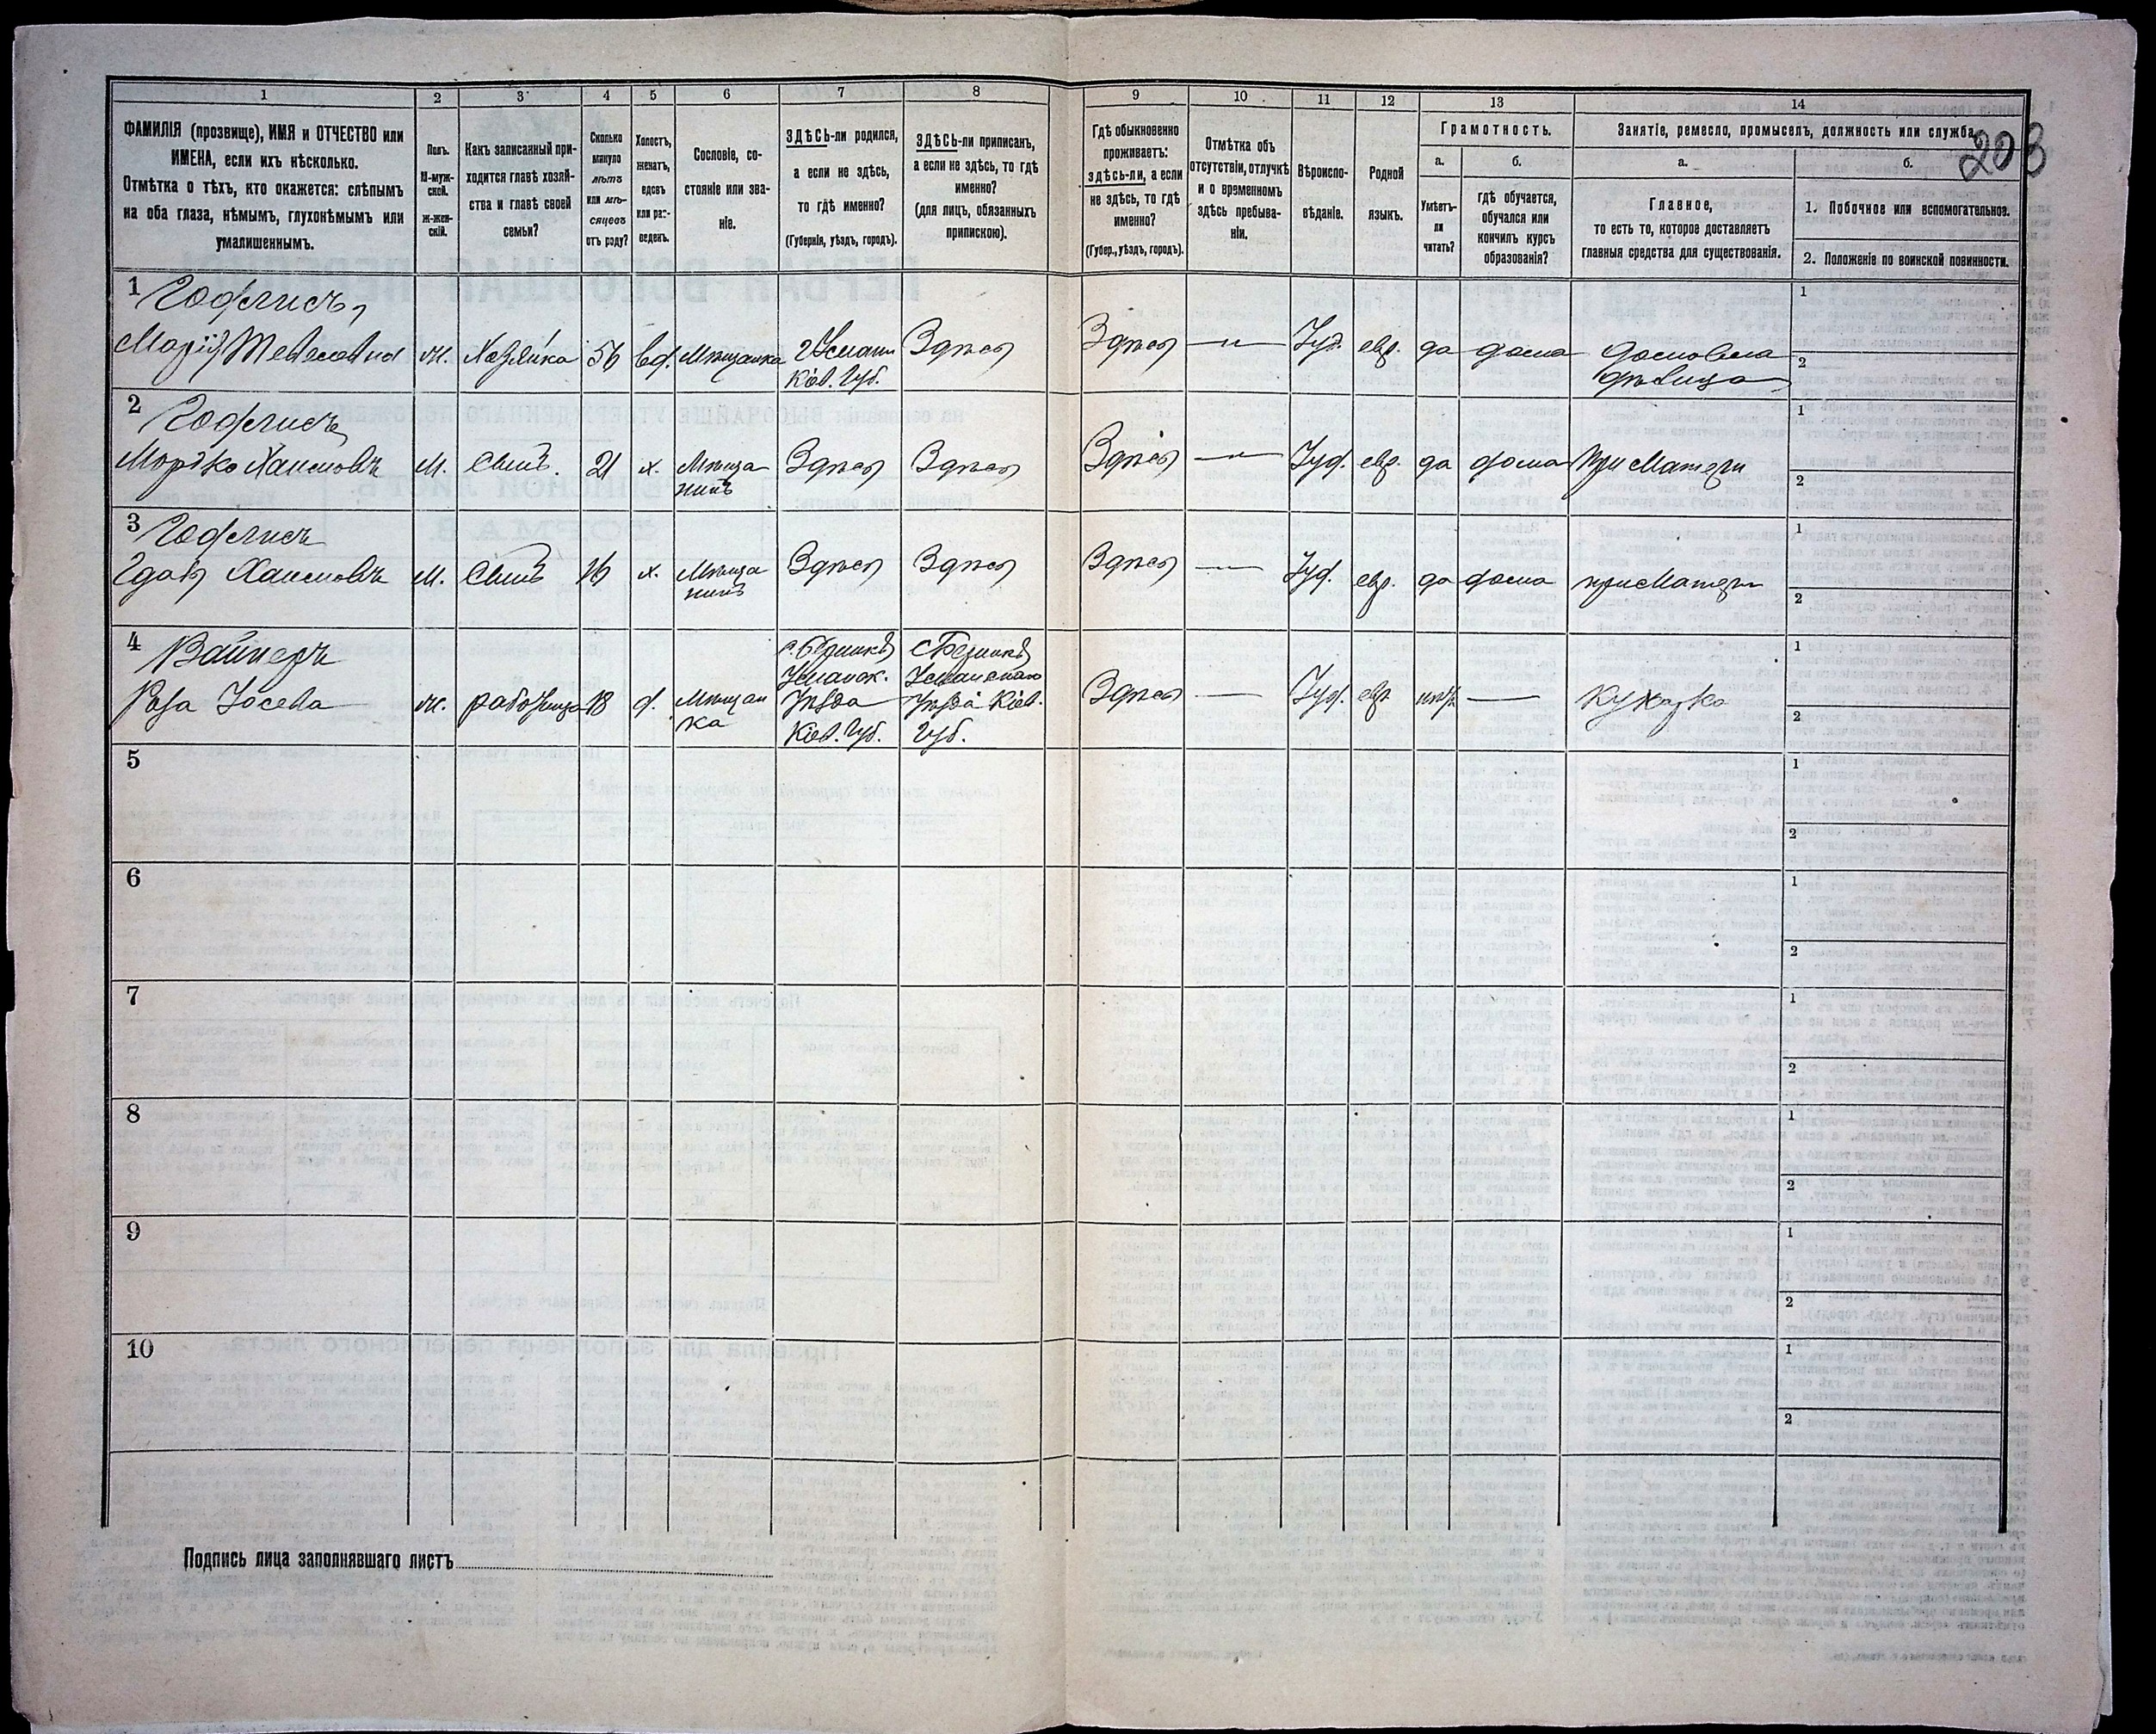 208
1
2
3
4
5
6
7
8
9
10
11
12
13
14
ФАМИЛІЯ (прозвище), ИМЯ и ОТЧЕСТВО или
ИМЕНА, если ихъ нѣсколько.
Отмѣтка о тѣхъ, кто окажется: слѣпымъ
на оба глаза, нѣмымъ, глухонѣмымъ или
умалишеннымъ.
Полъ.
М-муж-
ской.
ж-жен-
скій.
Какъ записанный при-
ходится главѣ хозяй-
ства и главѣ своей
семьи?
Сколько
минуло
лѣтъ
или мѣ-
сяцевъ
отъ роду?
Холостъ,
женатъ,
вдовъ
или раз-
веденъ.
Сословіе, со-
стояніе или зва-
ніе.
ЗДѢСЬ-ли родился,
а если не здѣсь,
то гдѣ именно?
(Губернія, уѣздъ, городъ).
ЗДѢСЬ-ли приписанъ,
а если не здѣсь, то гдѣ
именно?
(для лицъ, обязанныхъ
припискою).
Гдѣ обыкновенно
проживаетъ:
здѣсь-ли, а если
не здѣсь, то гдѣ
именно?
(Губер., уѣздъ, городъ).
Отмѣтка объ
отсутствіи, отлучкѣ
и о временномъ
здѣсь пребыва-
ніи.
Вѣроиспо-
вѣданіе.
Родной
языкъ.
Грамотность.
а.
Умѣетъ-
ли
читать?
б.
гдѣ обучается,
обучался или
кончилъ курсъ
образованія?
Занятіе, ремесло, промыселъ, должность или служба.
а.
Главное,
то есть то, которое доставляетъ
главныя средства для существованія.
б.
1. Побочное или вспомогательное.
2. Положеніе по воинской повинности.
1 Гофлисъ,
ж. Хозяйка 56 вд. Мѣщанка г Умань Здѣсь Здѣсь — Іуд. евр. да дома домовла
Кіев. Губ. дѣлица
1
2
2 Гофлисъ
Мордко Хаимовъ м. Сынъ. 21 х. Мѣща Здѣсь Здѣсь Здѣсь — Іуд. евр. да дома при Матери
нинъ
1
2
3 Гофлисъ
Хаимовъ м. Сынъ 16 х. Мѣща Здѣсь Здѣсь Здѣсь — Іуд. евр. да дома при Матери
нинъ
1
2
4 Вайнеръ
Роза Іосева ж. работница 18 д. Мѣщан Уманск. Уманскаго Здѣсь — Іуд. евр. нѣтъ — кухарка
ка Уѣзда Уѣзда Кіев.
Кіев. Губ. Губ.
1
2
5
1
2
6
1
2
7
1
2
8
1
2
9
1
2
10
1
2
Подпись лица заполнявшаго листъ